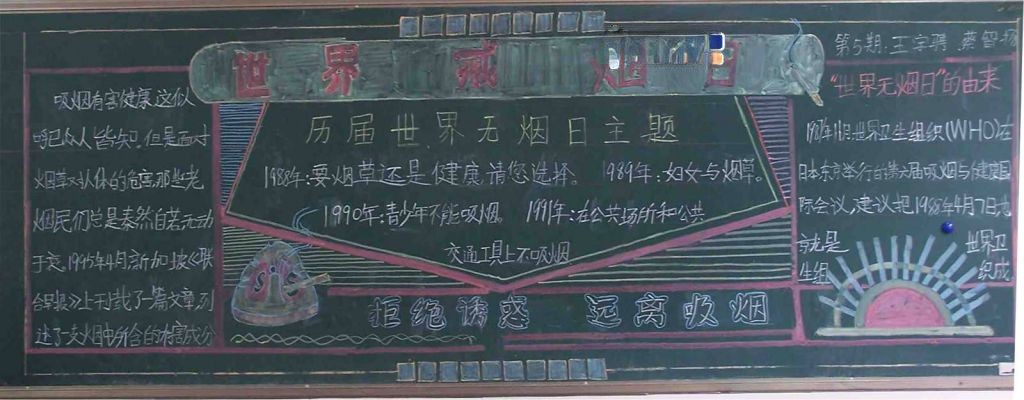 世界戒烟日
第5期:王宇骋 蔡智扬
吸烟有害健康,这似
乎已众人皆知。但是面对
烟草对人体的危害,那些老
烟民们总是泰然自若,无动
于衷。1995年4月,新加坡《联
合早报》上刊载了一篇文章,列
述了一支烟中所含的有害成分
历届世界无烟日主题
1988年:要烟草还是健康,请您选择。 1989年:妇女与烟草。
1990年:青少年不能吸烟。 1991年:在公共场所和公共
交通工具上不吸烟
拒绝诱惑 远离吸烟
"世界无烟日"的由来
1987年11月,世界卫生组织(WHO)在
日本东京举行的第六届吸烟与健康国
际会议,建议把1988年4月7日,也
就是 世界卫
生组 织成